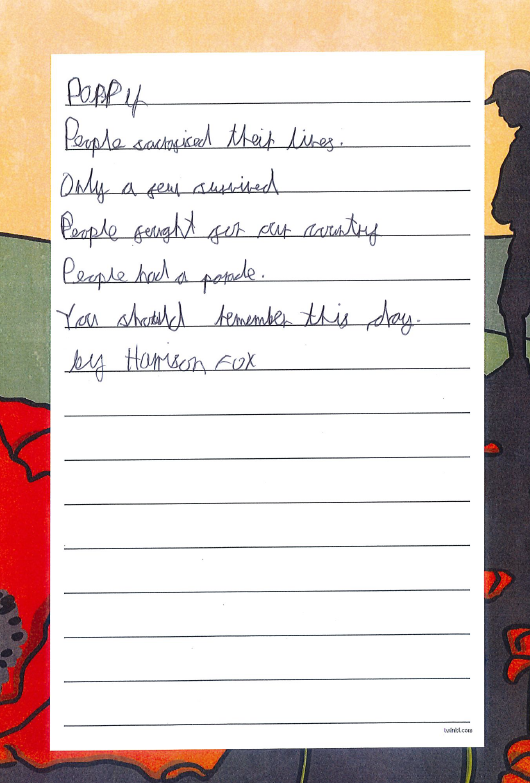 POPPY
People sacrificed their lives.
Only a few survived
People fought for our country
People had a parade.
You should remember this day.
by Harrison Fox
twinkl.com